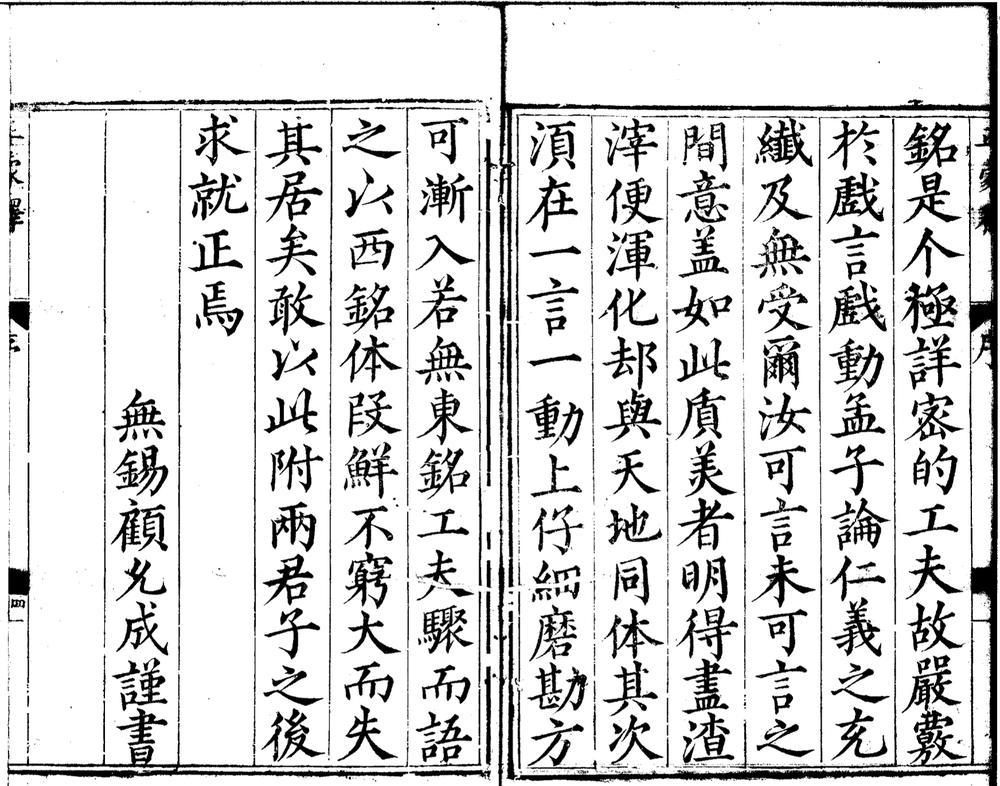 銘是个極詳密的工夫故嚴覈
於戲言戲動孟子論仁義之充
纎及無受爾汝可言未可言之
間意盖如此質美者明得盡渣
滓便渾化却與天地同体其次
湏在一言一動上仔細磨勘方
可漸入若無東銘工夫驟而語
之以西銘体叚鮮不窮大而失
其居矣敢以此附兩君子之後
求就正焉
無錫顧允成謹書
序
四